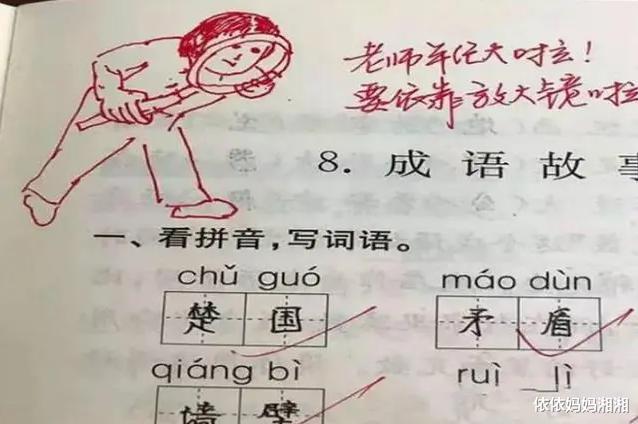 老师年纪大啦!
要依靠放大镜啦
8. 成语故事
一、看拼音,写词语。
chǔ guó
máo dùn
楚国
矛盾
qiáng bì
ruì lì
墙壁
依依妈妈湘湘